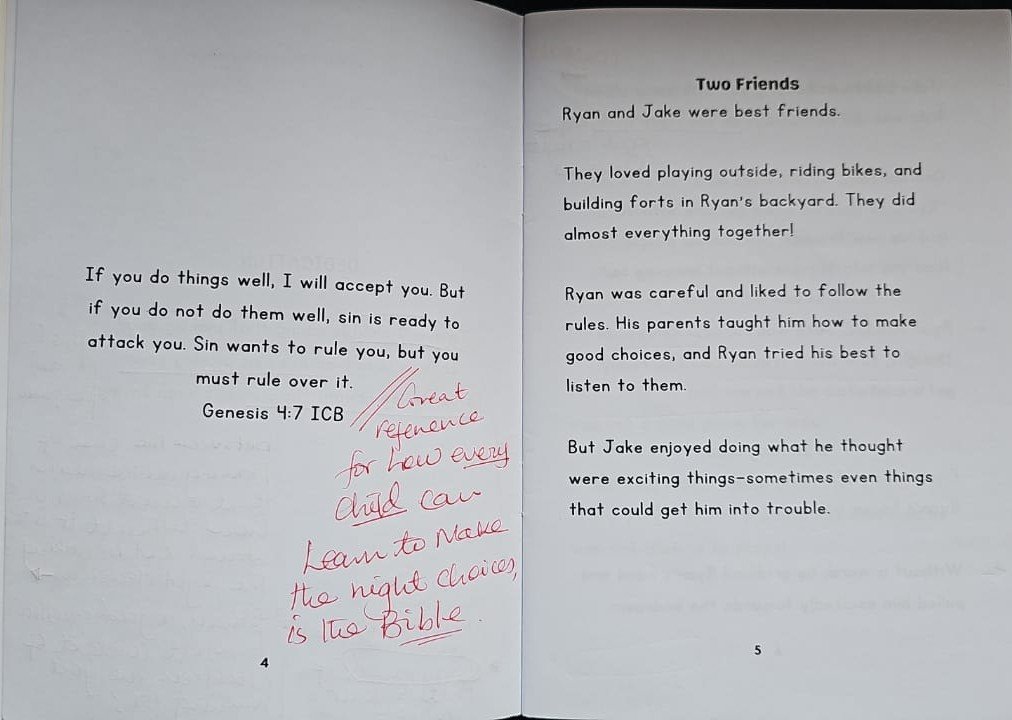 If you do things well, I will accept you. But
if you do not do them well, sin is ready to
attack you. Sin wants to rule you, but you
must rule over it.
Genesis 4:7 ICB
Great
reference
for how every
child can
Learn to Make
the right choices,
is the Bible.
4
Two Friends
Ryan and Jake were best friends.
They loved playing outside, riding bikes, and
building forts in Ryan's backyard. They did
almost everything together!
Ryan was careful and liked to follow the
rules. His parents taught him how to make
good choices, and Ryan tried his best to
listen to them.
But Jake enjoyed doing what he thought
were exciting things-sometimes even things
that could get him into trouble.
5